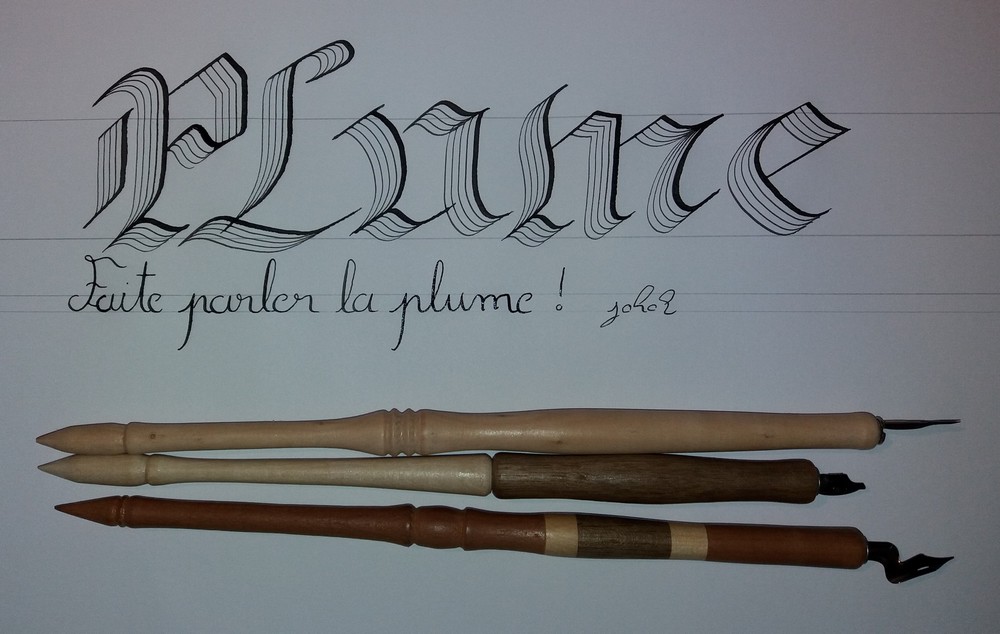 PLume
Faite parler la plume !